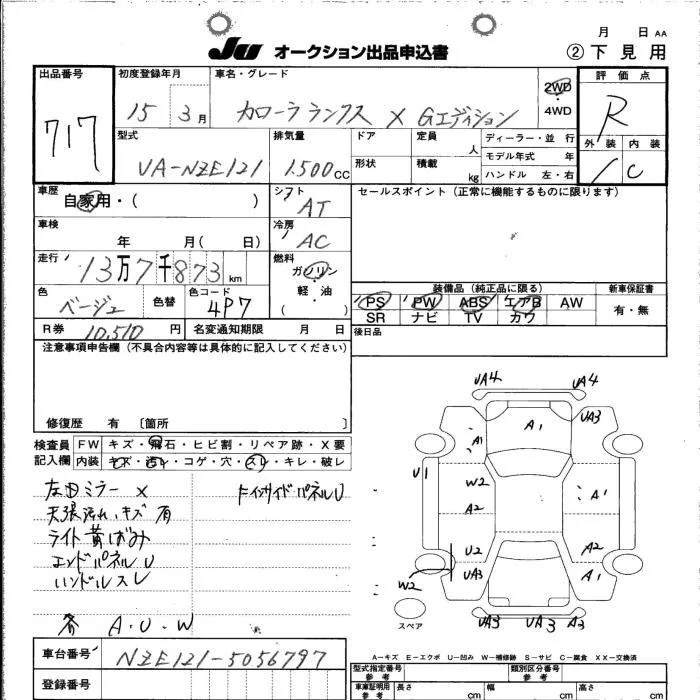 月 日 AA
JU オークション出品申込書 ② 下見用
出品番号 初度登録年月 車名・グレード 評価点
717 15 3月 カローラ ランクス X Gエディション 2WD・4WD R
型式 排気量 ドア 定員 人 ディーラー・並行 外装 内装
VA-NZE121 1.500cc 形状 積載 kg モデル年式 年 ハンドル 左・右 / C
車歴 自家用・( ) シフト AT セールスポイント(正常に機能するものに限ります)
車検 年 月( 日) 冷房 AC
走行 13万7千873km 燃料 ガソリン・軽・油 ( )
装備品(純正品に限る) 新車保証書
色 ベージュ 色替 色コード 4P7 PS PW ABS エアB AW 有・無
SR ナビ TV カワ
R券 10,510円 名変通知期限 月 日 後日品
注意事項申告欄(不具合内容等は具体的に記入してください)
修復歴 有 〔箇所 〕
検査員記入欄 FW キズ・飛石・ヒビ割・リペア跡・X要
内装 キズ・汚れ・コゲ・穴・スレ・キレ・破レ
左ドミラー X インサイドパネルU
天張汚れ、キズ有
ライト黄ばみ
エンドパネルU
ハンドルスレ
各 A・U・W
UA4 UA4
A1 UA3
A1
U1 W2 A1
A2
U2 A2
W2 UA3 A1
スペア UA3 UA3 A3
A-キズ E-エクボ U-凹み W-補修跡 S-サビ C-腐食 XX-交換済
車台番号 NZE121-5056797
登録番号
型式指定番号 参考 類別区分番号 参考
車庫証明用 参考 長さ cm 幅 cm 高さ cm